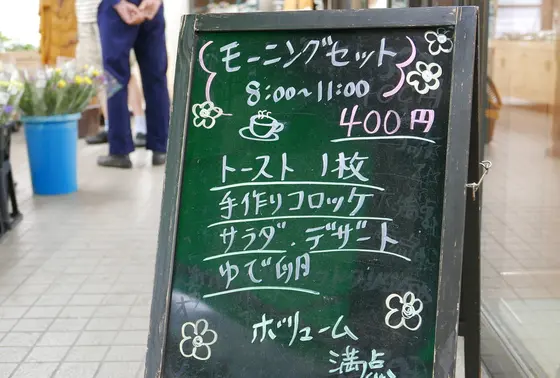 モーニングセット
8:00〜11:00
400円
トースト 1枚
手作りコロッケ
サラダ・デザート
ゆで卵
ボリューム
満点